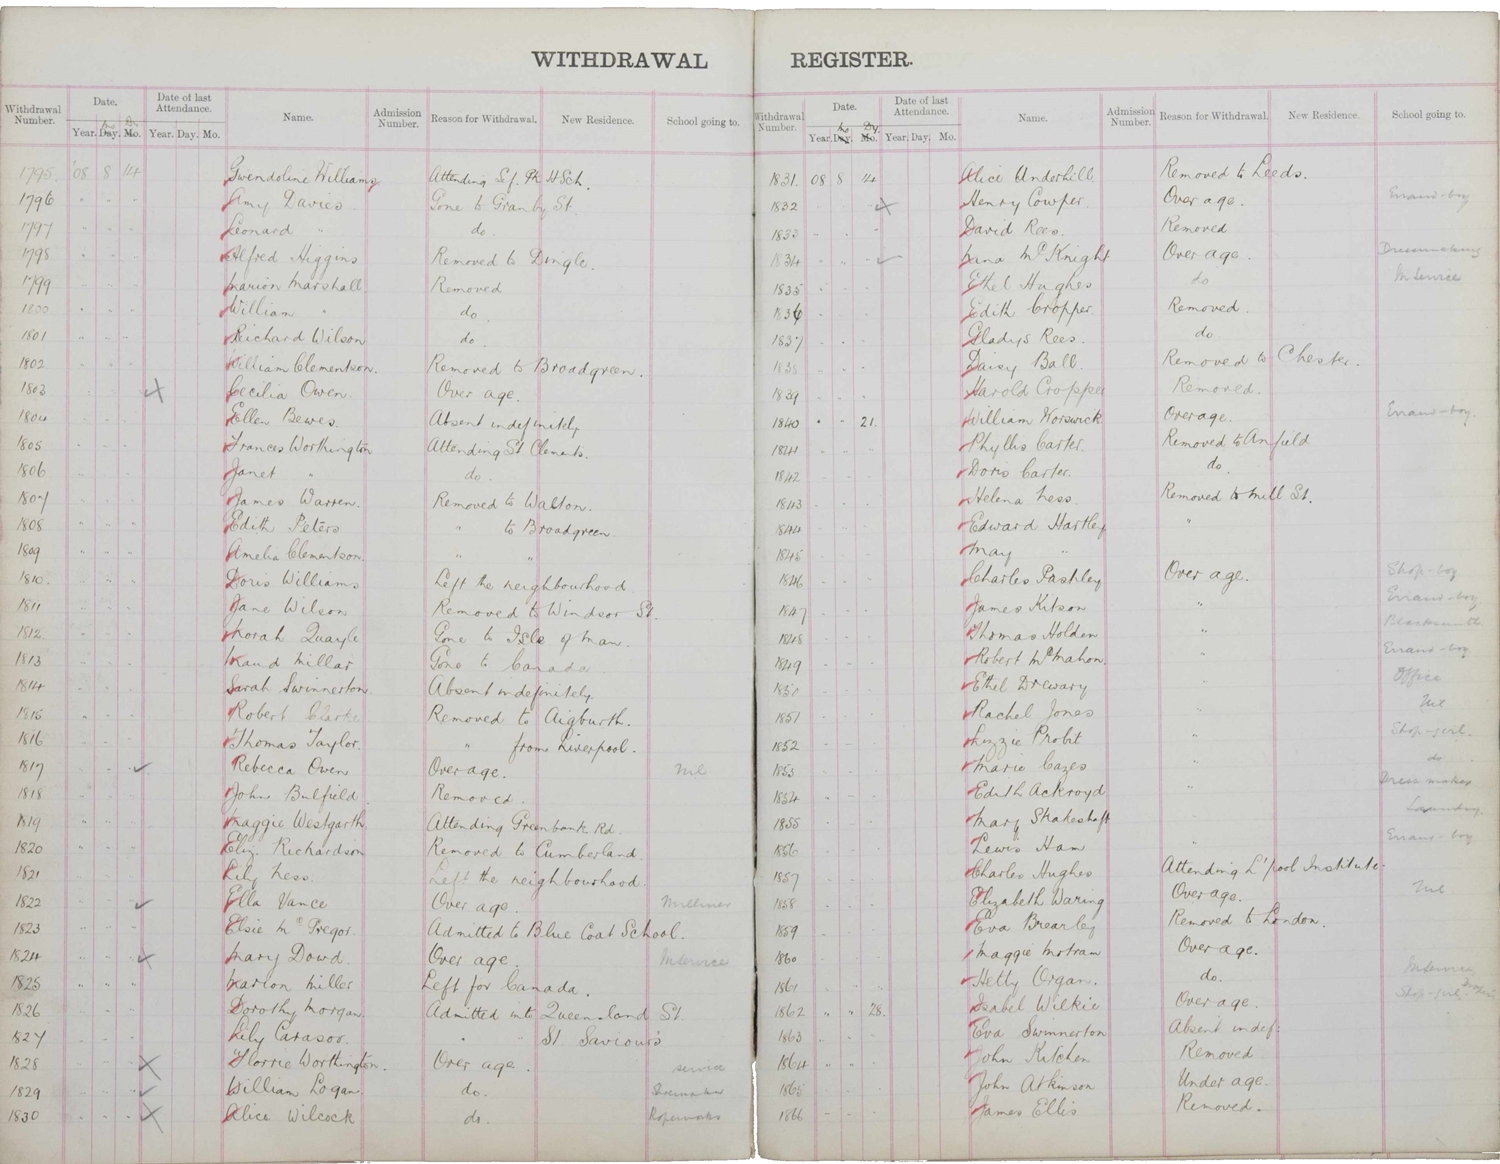 WITHDRAWAL REGISTER.
Withdrawal Number. Date. Year. Day. Mo. Date of last Attendance. Year. Day. Mo. Name. Admission Number. Reason for Withdrawal. New Residence. School going to.
Mo Dy.
1795. '08 8 14 Gwendoline Williams Attending Sef. Pk H Sch.
1796 " " " Amy Davies. Gone to Granby St.
1797 " " " Leonard " do.
1798 " " " Alfred Higgins Removed to Dingle.
1799 " " " Marion Marshall. Removed
1800 " " " William " do.
1801 " " " Richard Wilson do.
1802 " " " William Clementson. Removed to Broadgreen.
1803 " " " Cecilia Owen. Over age.
1804 " " " Ellen Bewes. Absent indefinitely
1805 " " " Frances Worthington Attending St Clements.
1806 " " " Janet " do.
1807 " " " James Warren. Removed to Walton.
1808 " " " Edith Peters " to Broadgreen.
1809 " " " Amelia Clementson. " "
1810. " " " Doris Williams Left the neighbourhood.
1811 " " " Jane Wilson Removed to Windsor St.
1812. " " " Norah Quayle Gone to Isle of Man.
1813 " " " Maud Millar Gone to Canada
1814 " " " Sarah Swinnerton Absent indefinitely.
1815 " " " Robert Clarke Removed to Aigburth.
1816 " " " Thomas Taylor. " from Liverpool.
1817 " " " Rebecca Owen Over age. Nil
1818 " " " John Bulfield. Removed.
1819 " " " Maggie Westgarth. Attending Greenbank Rd.
1820 " " " Eliz. Richardson Removed to Cumberland.
1821 " " " Lily Ness. Left the neighbourhood.
1822 " " " Ella Vance Over age. Milliner
1823 " " " Elsie McGregor. Admitted to Blue Coat School.
1824 " " " Mary Dowd. Over age. In service
1825 " " " Marion Miller Left for Canada.
1826 " " " Dorothy Morgan. Admitted into Queensland St.
1827 " " " Lily Carasov. " " St. Saviour's
1828 " " " Florrie Worthington. Over age. service
1829 " " " William Logan. do. Shoemaker
1830 " " " Alice Wilcock do. Ropeworks
Withdrawal Number. Date. Year. Day. Mo. Date of last Attendance. Year. Day. Mo. Name. Admission Number. Reason for Withdrawal. New Residence. School going to.
Mo Dy.
1831. 08 8 14 Alice Underhill. Removed to Leeds.
1832 " " " Henry Cowper. Over age. Errand-boy
1833 " " " David Rees. Removed
1834 " " " Nana McKnight Over age. Dressmaking
1835 " " " Ethel Hughes do In service
1836 " " " Edith Cropper. Removed.
1837 " " " Gladys Rees. do.
1838 " " " Daisy Ball. Removed to Chester.
1839 " " " Harold Cropper Removed.
1840 " " 21. William Worswick. Over age. Errand-boy.
1841 " " " Phyllis Carter. Removed to Anfield
1842 " " " Doris Carter. do.
1843 " " " Helena Ness. Removed to Mill St.
1844 " " " Edward Hartley "
1845 " " " May "
1846 " " " Charles Pashley Over age. Shop-boy
1847 " " " James Kitson " Errand-boy
1848 " " " Thomas Holden " Blacksmith
1849 " " " Robert McMahon. " Errand-boy
1850 " " " Ethel Drewary " Office
1851 " " " Rachel Jones " Nil
1852 " " " Lizzie Probit " Shop-girl.
1853 " " " Marie Cazes " do
1854 " " " Edith Ackroyd " Dress maker
1855 " " " Mary Shakeshaft " Laundry
1856 " " " Lewis Ham " Errand-boy
1857 " " " Charles Hughes Attending L'pool Institute.
1858 " " " Elizabeth Waring Over age. Nil
1859 " " " Eva Brearley Removed to London.
1860 " " " Maggie Motram Over age.
1861 " " " Hetty Organ. do. In service
1862 " " 28. Isabel Wilkie Over age. Shop-girl.
1863 " " " Eva Swinnerton Absent indef:
1864 " " " John Kitchen Removed
1865 " " " John Atkinson Under age.
1866 " " " James Ellis Removed.